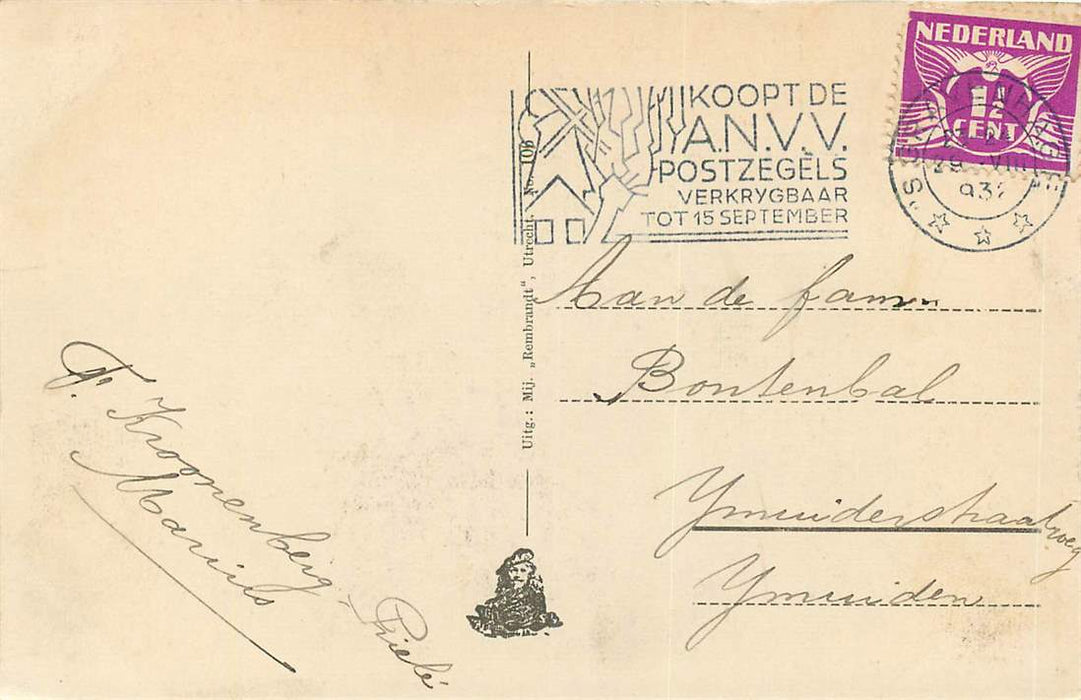 NEDERLAND
1½
CENT
KOOPT DE
A.N.V.V.
POSTZEGELS
VERKRYGBAAR
TOT 15 SEPTEMBER
29 VIII
1932
Uitg.: Mij. „Rembrandt“, Utrecht. No. 106
Aan de fam
Bontenbal
Ymuiderstraatweg
Ymuiden
F. Kroonenberg
Marius